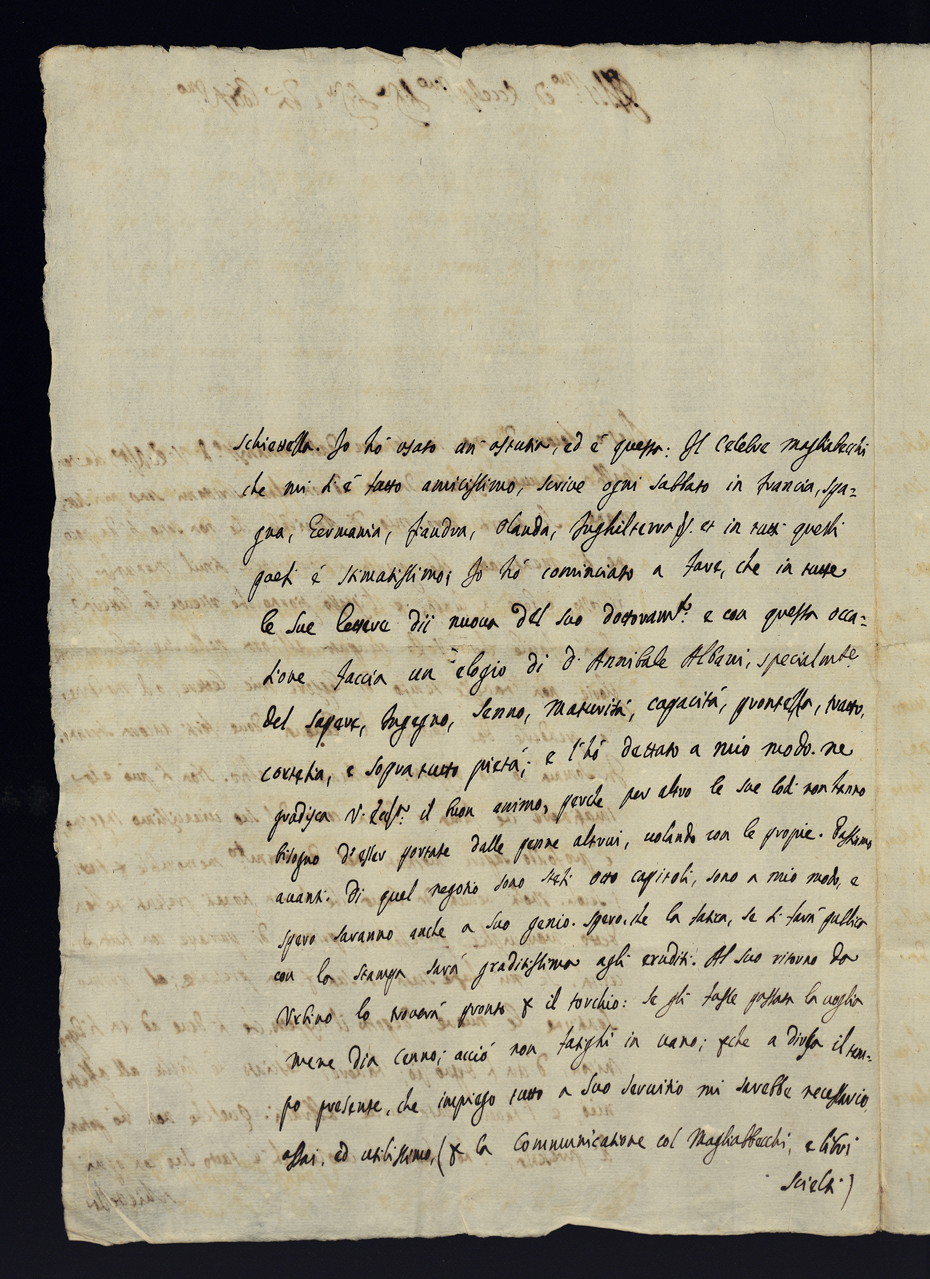 schiettezza. Io hò usato un' astutia, ed è questa: Il Celebre Magliabecchi
che mi s'è fatto amicissimo, scrive ogni sabbato in Francia, Spa-
gna, Germania, Fiandra, Olanda, Inghilterra et in tutti questi
paesi è stimatissimo; Io hò cominciato a fare, che in tutte
le sue lettere dii nuova del suo dottoram.to e con questa occa-
sione faccia un elogio di D. Annibale Albani, specialmte
del sapere, Ingegno, Senno, maturità, capacità, prontezza, tratto,
cortesia, e sopra tutto pietà; e l'hò dettato a mio modo. ne
gradisca V. Ecc. il buon animo, perche per altro le sue lodi non hanno
bisogno d'esser portate dalle penne altrui, volando con le proprie. Passiamo
avanti. Di quel negotio sono stati otto capitoli, sono a mio modo, e
spero saranno anche a suo genio. spero, che la fatica, se si farà publica
con la stampa sarà graditissima agli eruditi. Al suo ritorno da
Urbino lo troverà pronto p il torchio: se gli fosse passata la voglia
mene dia cenno; acciò non fatighi in vano; pche a dirla il tem-
po presente, che impiego tutto a suo servitio mi sarebbe necessario
assai, ed utilissimo, (p la Communicatione col Magliabbecchi, e libri
scielti)